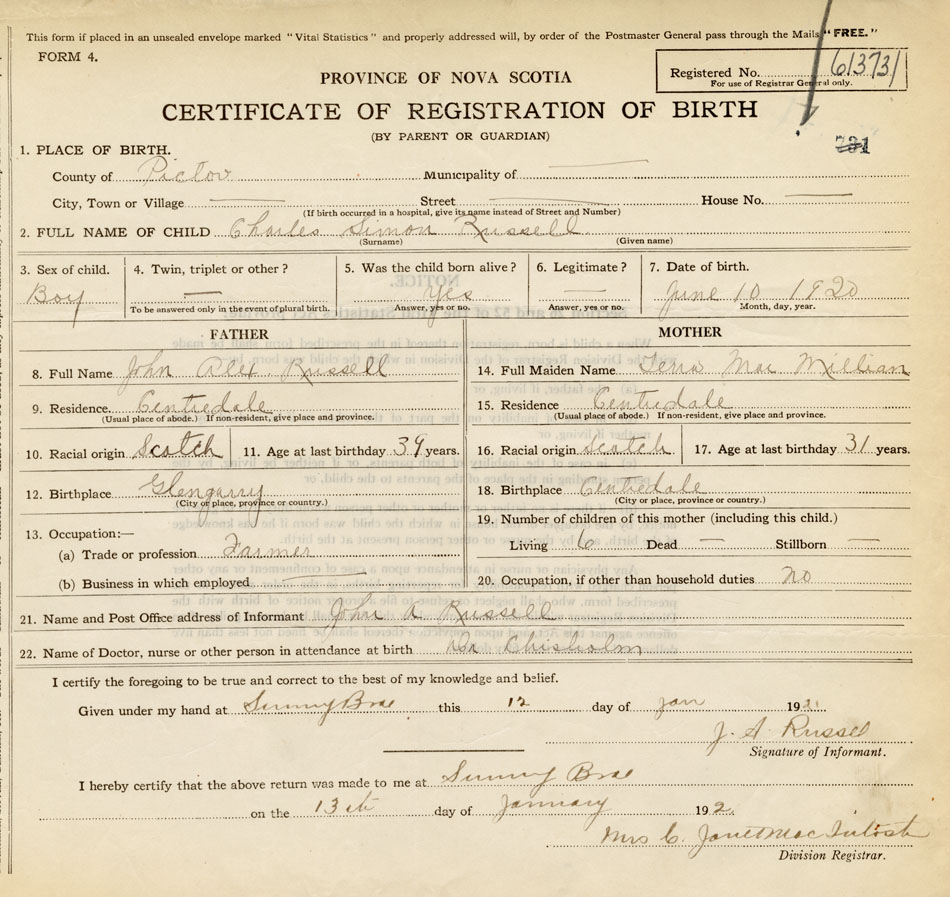 This form if placed in an unsealed envelope marked "Vital Statistics" and properly addressed will, by order of the Postmaster General pass through the Mails "FREE."
FORM 4.
PROVINCE OF NOVA SCOTIA
Registered No. 61373
For use of Registrar General only.
CERTIFICATE OF REGISTRATION OF BIRTH
(BY PARENT OR GUARDIAN)
1. PLACE OF BIRTH.
County of Pictou Municipality of
City, Town or Village Street House No.
(If birth occurred in a hospital, give its name instead of Street and Number)
2. FULL NAME OF CHILD Charles Simon Russell
(Surname) (Given name)
3. Sex of child. 4. Twin, triplet or other? 5. Was the child born alive? 6. Legitimate? 7. Date of birth.
Boy — Yes — June 10 1920
To be answered only in the event of plural birth. Answer, yes or no. Answer, yes or no. Month, day, year.
FATHER MOTHER
8. Full Name John Alex. Russell 14. Full Maiden Name Mac Millian
9. Residence. Centredale 15. Residence Centredale
(Usual place of abode.) If non-resident, give place and province. (Usual place of abode.) If non-resident, give place and province.
10. Racial origin Scotch 11. Age at last birthday 39 years. 16. Racial origin Scotch 17. Age at last birthday 31 years.
12. Birthplace Glengarry 18. Birthplace Centredale
(City or place, province or country.) (City or place, province or country.)
13. Occupation:— 19. Number of children of this mother (including this child.)
(a) Trade or profession Farmer Living 6 Dead — Stillborn —
(b) Business in which employed 20. Occupation, if other than household duties no
21. Name and Post Office address of Informant John A Russell
22. Name of Doctor, nurse or other person in attendance at birth Dr Chisholm
I certify the foregoing to be true and correct to the best of my knowledge and belief.
Given under my hand at Sunny Brae this 12 day of Jan 1921
J. A. Russel
Signature of Informant.
I hereby certify that the above return was made to me at Sunny Brae
on the 13th day of January 192
Mrs C. Janet MacIntosh
Division Registrar.